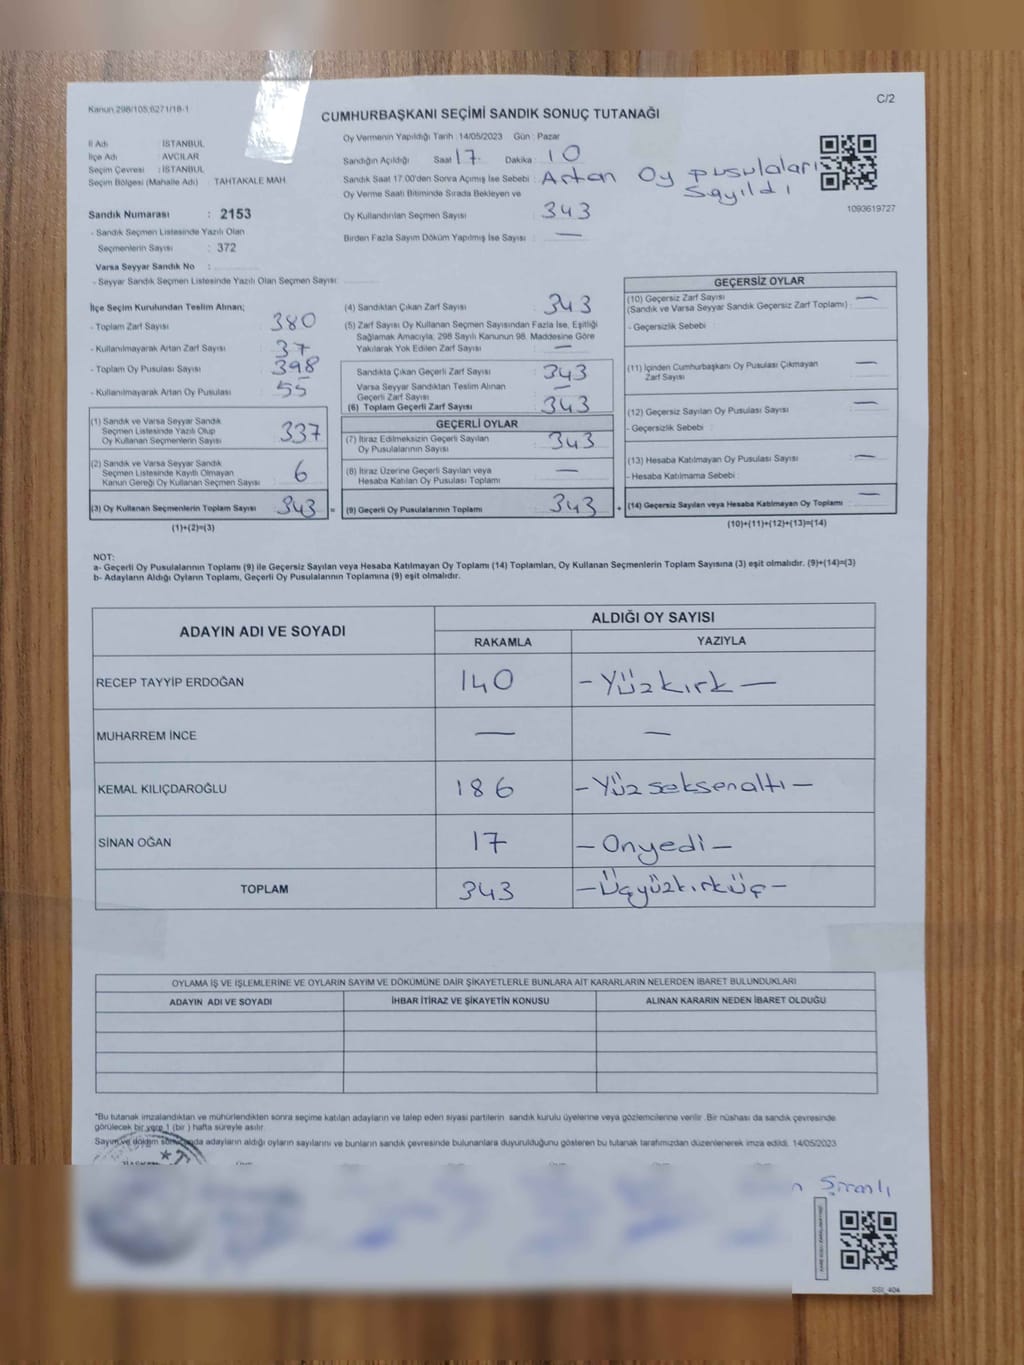 Kanun 298/105,6271/18-1
C/2
CUMHURBAŞKANI SEÇİMİ SANDIK SONUÇ TUTANAĞI
İl Adı : İSTANBUL
İlçe Adı : AVCILAR
Seçim Çevresi : İSTANBUL
Seçim Bölgesi (Mahalle Adı) TAHTAKALE MAH.
Sandık Numarası : 2153
- Sandık Seçmen Listesinde Yazılı Olan
Seçmenlerin Sayısı : 372
Varsa Seyyar Sandık No :
- Seyyar Sandık Seçmen Listesinde Yazılı Olan Seçmen Sayısı:
Oy Vermenin Yapıldığı Tarih : 14/05/2023 Gün : Pazar
Sandığın Açıldığı Saat 17 Dakika 10
Sandık Saat 17:00'den Sonra Açımış İse Sebebi : Artan Oy pusulaları sayıldı
Oy Verme Saati Bitiminde Sırada Bekleyen ve
Oy Kullandırılan Seçmen Sayısı 343
Birden Fazla Sayım Döküm Yapılmış İse Sayısı : —
1093619727
İlçe Seçim Kurulundan Teslim Alınan;
- Toplam Zarf Sayısı : 380
- Kullanılmayarak Artan Zarf Sayısı : 37
- Toplam Oy Pusulası Sayısı : 398
- Kullanılmayarak Artan Oy Pusulası : 55
(1) Sandık ve Varsa Seyyar Sandık
Seçmen Listesinde Yazılı Olup
Oy Kullanan Seçmenlerin Sayısı : 337
(2) Sandık ve Varsa Seyyar Sandık
Seçmen Listesinde Kayıtlı Olmayan
Kanun Gereği Oy Kullanan Seçmen Sayısı : 6
(3) Oy Kullanan Seçmenlerin Toplam Sayısı : 343 =
(1)+(2)=(3)
(4) Sandıktan Çıkan Zarf Sayısı : 343
(5) Zarf Sayısı Oy Kullanan Seçmen Sayısından Fazla İse, Eşitliği
Sağlamak Amacıyla, 298 Sayılı Kanunun 98. Maddesine Göre
Yakılarak Yok Edilen Zarf Sayısı : —
Sandıkta Çıkan Geçerli Zarf Sayısı : 343
Varsa Seyyar Sandıktan Teslim Alınan
Geçerli Zarf Sayısı : —
(6) Toplam Geçerli Zarf Sayısı : 343
GEÇERLİ OYLAR
(7) İtiraz Edilmeksizin Geçerli Sayılan
Oy Pusulalarının Sayısı : 343
(8) İtiraz Üzerine Geçerli Sayılan veya
Hesaba Katılan Oy Pusulası Toplamı : —
(9) Geçerli Oy Pusulalarının Toplamı : 343 +
GEÇERSİZ OYLAR
(10) Geçersiz Zarf Sayısı
(Sandık ve Varsa Seyyar Sandık Geçersiz Zarf Toplamı) : —
- Geçersizlik Sebebi :
(11) İçinden Cumhurbaşkanı Oy Pusulası Çıkmayan
Zarf Sayısı : —
(12) Geçersiz Sayılan Oy Pusulası Sayısı : —
- Geçersizlik Sebebi :
(13) Hesaba Katılmayan Oy Pusulası Sayısı : —
- Hesaba Katılmama Sebebi :
(14) Geçersiz Sayılan veya Hesaba Katılmayan Oy Toplamı : —
(10)+(11)+(12)+(13)=(14)
NOT:
a- Geçerli Oy Pusulalarının Toplamı (9) ile Geçersiz Sayılan veya Hesaba Katılmayan Oy Toplamı (14) Toplamları, Oy Kullanan Seçmenlerin Toplam Sayısına (3) eşit olmalıdır. (9)+(14)=(3)
b- Adayların Aldığı Oyların Toplamı, Geçerli Oy Pusulalarının Toplamına (9) eşit olmalıdır.
ADAYIN ADI VE SOYADI ALDIĞI OY SAYISI
RAKAMLA YAZIYLA
RECEP TAYYİP ERDOĞAN 140 - Yüzkırk —
MUHARREM İNCE — —
KEMAL KILIÇDAROĞLU 186 - Yüz seksenaltı -
SİNAN OĞAN 17 - Onyedi -
TOPLAM 343 - Üçyüzkırküç -
OYLAMA İŞ VE İŞLEMLERİNE VE OYLARIN SAYIM VE DÖKÜMÜNE DAİR ŞİKAYETLERLE BUNLARA AİT KARARLARIN NELERDEN İBARET BULUNDUKLARI
ADAYIN ADI VE SOYADI İHBAR İTİRAZ VE ŞİKAYETİN KONUSU ALINAN KARARIN NEDEN İBARET OLDUĞU
*Bu tutanak imzalandıktan ve mühürlendikten sonra seçime katılan adayların ve talep eden siyasi partilerin sandık kurulu üyelerine veya gözlemcilerine verilir. Bir nüshası da sandık çevresinde
görülecek bir yere 1 (bir) hafta süreyle asılır.
Sayım ve döküm sonucunda adayların aldığı oyların sayılarını ve bunların sandık çevresinde bulunanlara duyurulduğunu gösteren bu tutanak tarafımızdan düzenlenerek imza edildi. 14/05/2023
Şiranlı
SSI_404